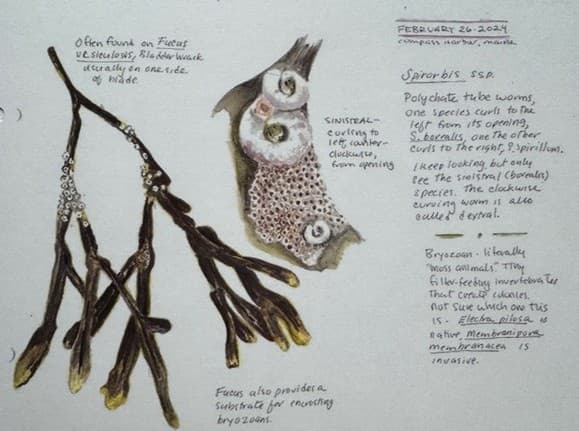 FEBRUARY 26 · 2024
Compass Harbor, Maine
Often found on Fucus
vesiculosis, Bladder wrack
usually on one side
of blade
SINISTRAL-
curling to
left, counter-
clockwise,
from opening
Spirorbis ssp.
Polychate tube worms,
one species curls to the
left from its opening,
S. borealis, one the other
curls to the right, S. spirillum.
I keep looking but only
see the sinistral (borealis)
species. The clockwise
curving worm is also
called dextral.
Bryozoan - literally
"moss animals." Tiny
filter-feeding invertebrates
that create colonies.
Not sure which one this
is - Electra pilosa is
native, Membranipora
membranacea is
invasive.
Fucus also provides a
substrate for encrusting
bryozoans.